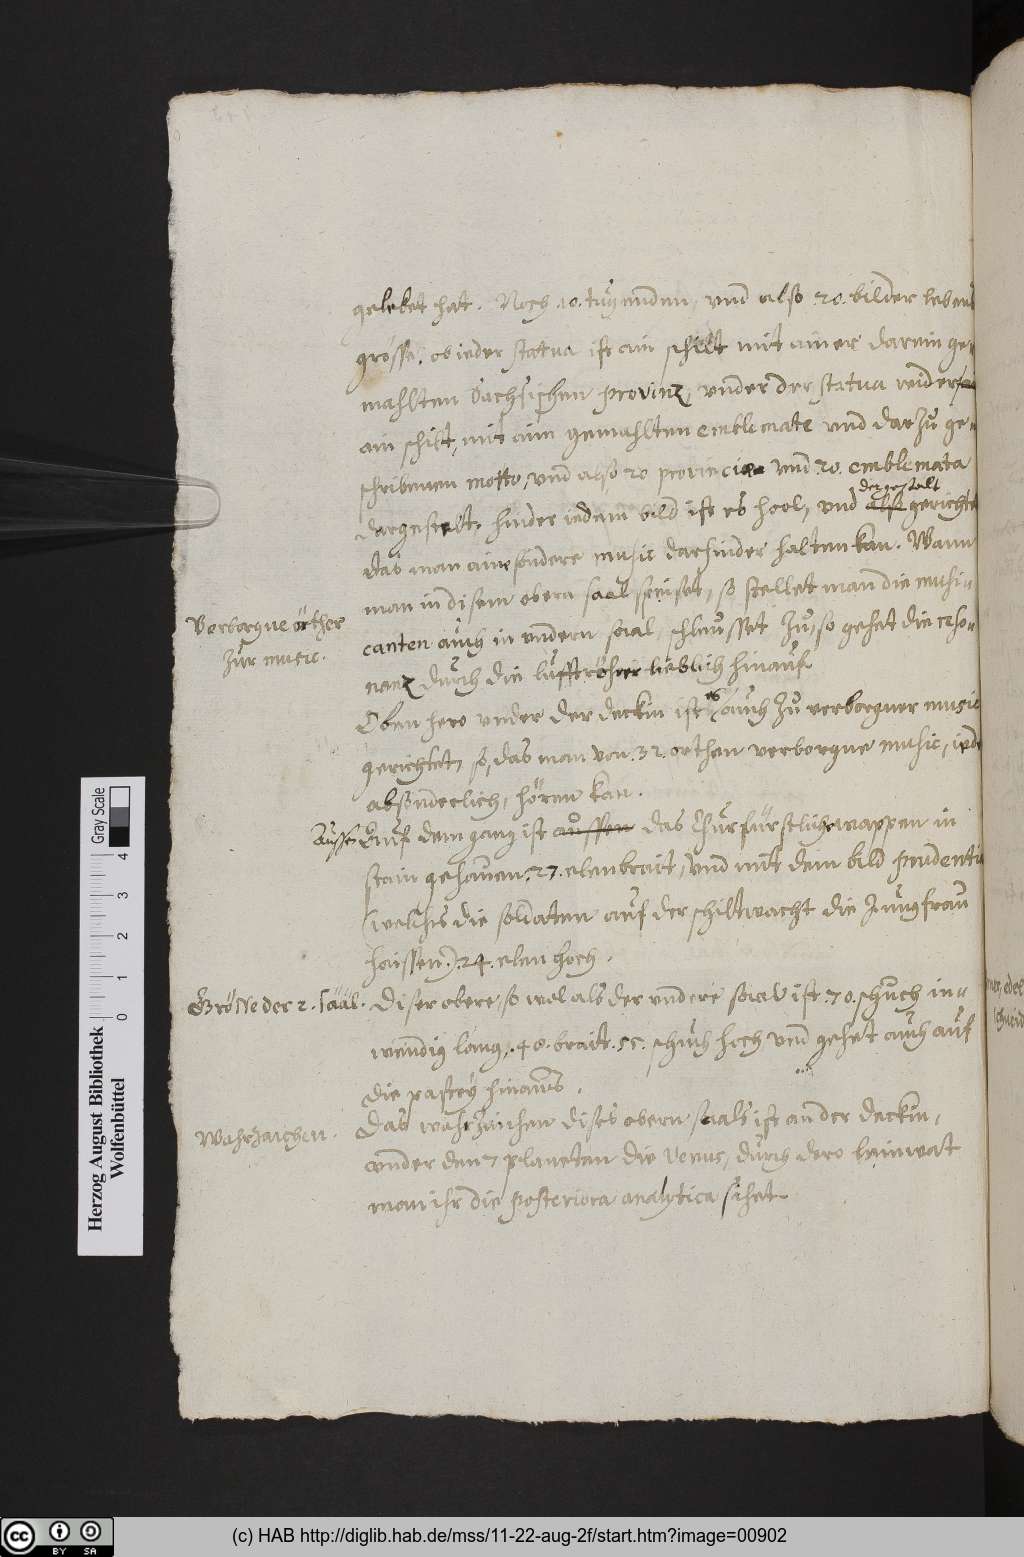 gelebet hat. Noch .10. tugenden, vnd also 20. bilder lebens
grösse. ob ieder statua ist ain schilt mit ainer darein ge-
mahlten Sachsischen provinz, vnder der statua wider
ain schilt, mit aim gemahlten emblemate vnd darzů ge-
schribenem motto, vnd also 20 provinciae vnd .20. emblemata
dargestelt, hinder iedem bild ist es hool, vnd dergestalt gerichtet
das man aine sondere music darhinder halten kan. Wann
man in disem obern saal speiset, so stellet man die musi-
Verborgne örther
zur music.
canten auch in vndern saal, schleusset zů, so gehet die reso-
nanz durch die lufftröhrer lieblich hinauf.
Oben hero vnder der deckin ist es auch zů verborgner music
gerichtet, so, das man von .32. orthen verborgne music, iede
absonderlich, hören kan.
Aussen Auf dem gang ist aussen das Churfürstliche wappen in
stain gehawen, 27. elen brait, vnd mit dem bild prudentiae
(welches die soldaten auf der schiltwacht die Jungfraw
haissen.) .24. elen hoch.
Grösse der 2. sääl.
Diser obere, so wol als der vndere saal ist .70. schuch in-
wendig lang, .40. brait .55. schuch hoch vnd gehet auch auf
die pastey hinauss.
Wahrzaichen.
Das wahrzaichen dises obern saals ist an der deckin,
vnder den 7 planeten die Venus, durch dero leinwat
man ihr die posteriora analytica sihet.
Herzog August Bibliothek
Wolfenbüttel
Gray Scale
0 1 2 3 4
(c) HAB http://diglib.hab.de/mss/11-22-aug-2f/start.htm?image=00902
cc BY SA